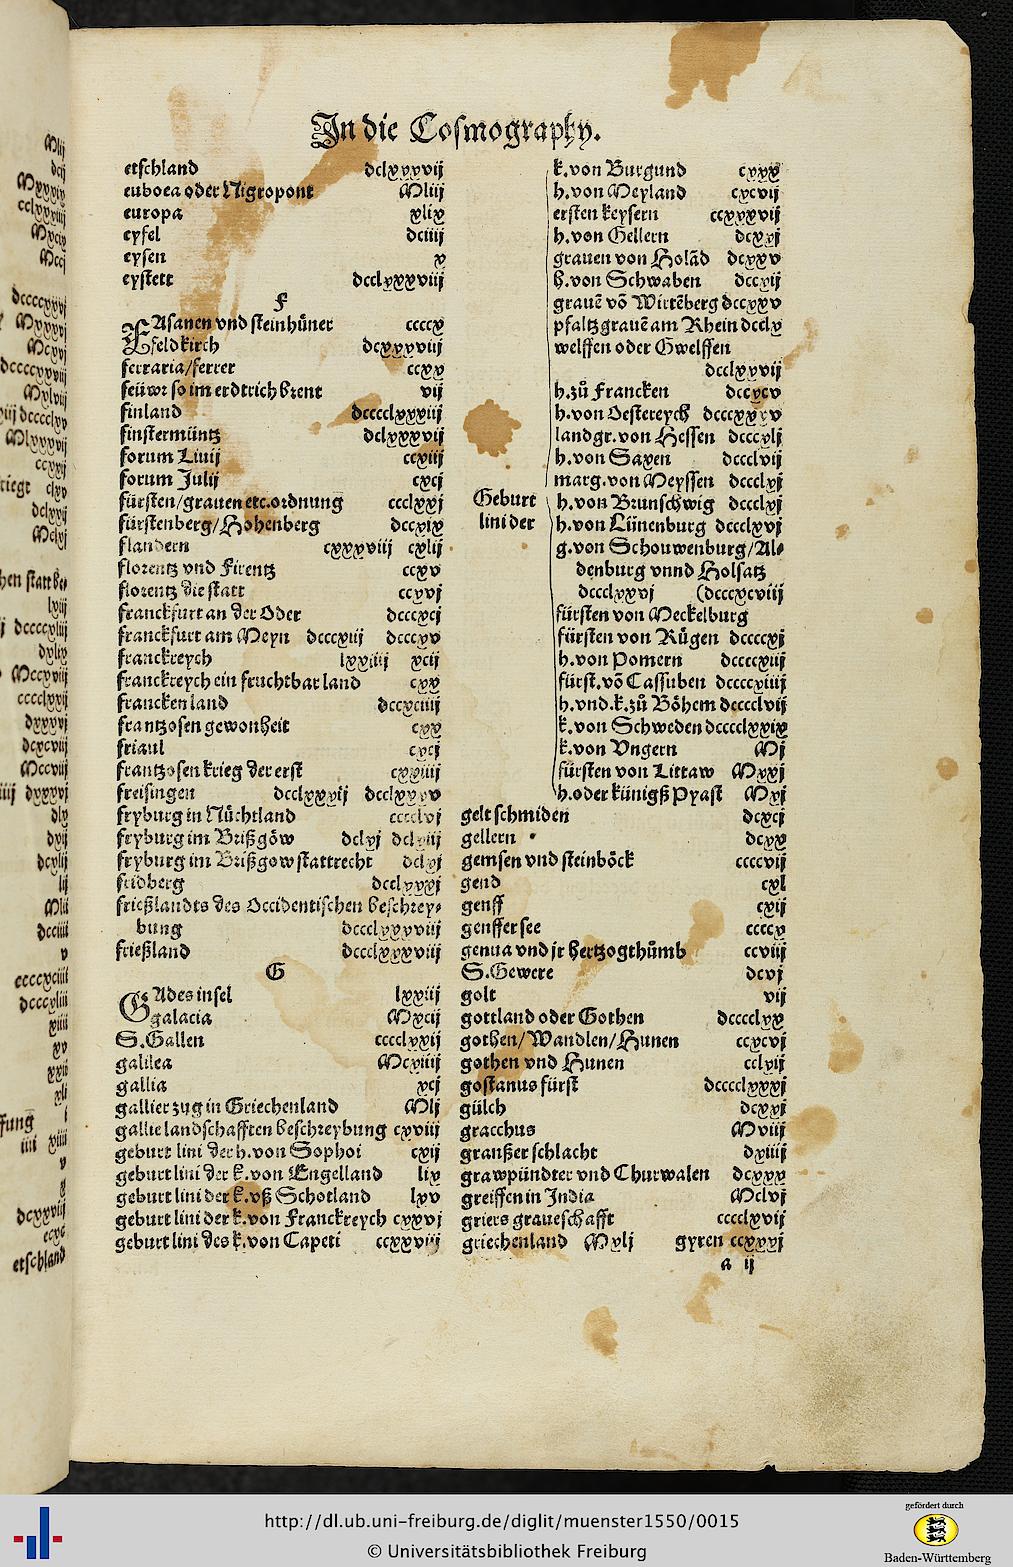 In die Cosmography.
etschland dclxxxvij
euboea oder Nigropont Mliij
europa xlix
eyfel dciiij
eysen x
eystett dcclxxxviij
F
FAsanen vnd steinhüner ccccx
feldkirch dcxxxviij
ferraria/ferrer ccxx
feüwr so im erdtrich brent vij
finland dcccclxxxiij
finstermüntz dclxxxvij
forum Liuij ccxiij
forum Julij cxcj
fürsten/grauen etc. ordnung ccclxxj
fürstenberg/Hohenberg dccxix
flandern cxxxviij cxlij
florentz vnd Firentz ccxv
florentz die statt ccxvj
franckfurt an der Oder dcccxcj
franckfurt am Meyn dcccxiij dcccxv
franckreych lxxiiij xcij
franckreych ein fruchtbar land cxx
francken land dccxciij
frantzosen gewonheit cxx
friaul cxcj
frantzosen krieg der erst cxxiiij
freisingen dcclxxxij
fryburg in Nüchtland
fryburg im Brißgöw dclxj
fryburg im Brißgow stattrecht dclxj
fridberg dcclxxxj
frießlandts des Occidentischen beschrey-
bung dccclxxxviij
frießland dccclxxxviij
G
GAdes insel lxxiij
galacia Mxcij
S. Gallen cccclxxij
galilea Mcxiiij
gallia xcj
gallier zug in Griechenland Mlj
gallie landschafften beschreybung cxviij
geburt lini der h. von Sophoi cxij
geburt lini der k. von Engelland lix
geburt lini der k. vß Schotland lxv
geburt lini der k. von Franckreych cxxvj
geburt lini des k. von Capeti ccxxviij
Geburt
lini der
k. von Burgund cxxx
h. von Meyland cxcvij
ersten keysern ccxxxvij
h. von Gellern dcxxj
grauen von Holãd dcxxv
h. von Schwaben dccxij
grauẽ võ Wirtẽberg dccxxv
pfaltzgrauẽ am Rhein dcclx
welffen oder Gwelffen
dcclxxvij
h. zů Francken dccxcv
h. von Oestereych dcccxxxv
landgr. von Hessen dcccxlj
h. von Saxen dccclvij
marg. von Meyssen dccclxj
h. von Brunschwig dccclxj
h. von Lünenburg dccclxvj
g. von Schouwenburg/Al-
denburg vnnd Holsatz
dccclxxvj (dcccxcviij
fürsten von Meckelburg
fürsten von Rügen dccccxj
h. von Pomern dccccxiij
fürst. võ Cassuben dccccxiiij
h. vnd. k. zů Böhem dcccclvij
k. von Schweden dcccclxxix
k. von Vngern Mj
fürsten von Littaw Mxxj
h. oder künigß Pyast Mxj
gelt schmiden dcxcj
gellern dcxx
gemsen vnd steinböck ccccvij
gend cxl
genff cxij
genffer see ccccx
genua vnd jr hertzogthůmb ccviij
S. Gewere dcvj
golt vij
gottland oder Gothen dcccclxx
gothen/Wandlen/Hunen ccxcvj
gothen vnd Hunen cclxij
gostanus fürst dcccclxxxj
gülch dcxxj
gracchus Mviij
granßer schlacht dxiiij
grawpündter vnd Churwalen dcxxx
greiffen in India Mclvj
griers graueschafft cccclxvij
griechenland Mxlj gyren ccxxxj
a ij
http://dl.ub.uni-freiburg.de/diglit/muenster1550/0015
© Universitätsbibliothek Freiburg
gefördert durch
Baden-Württemberg